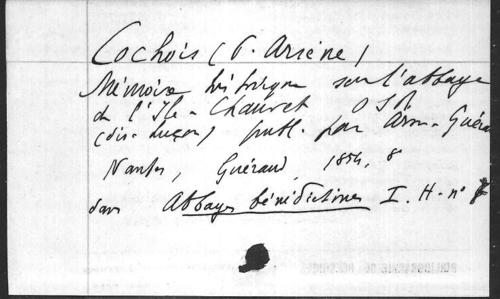 Cochois (P. Arsène)
Mémoire historique sur l'abbaye
de l'Ile-Chauvet OSB
(dis. Luçon) publ. par Arm. Guérau
Nantes, Guéraud, 1854, 8
dans Abbayes bénédictines I. H - no